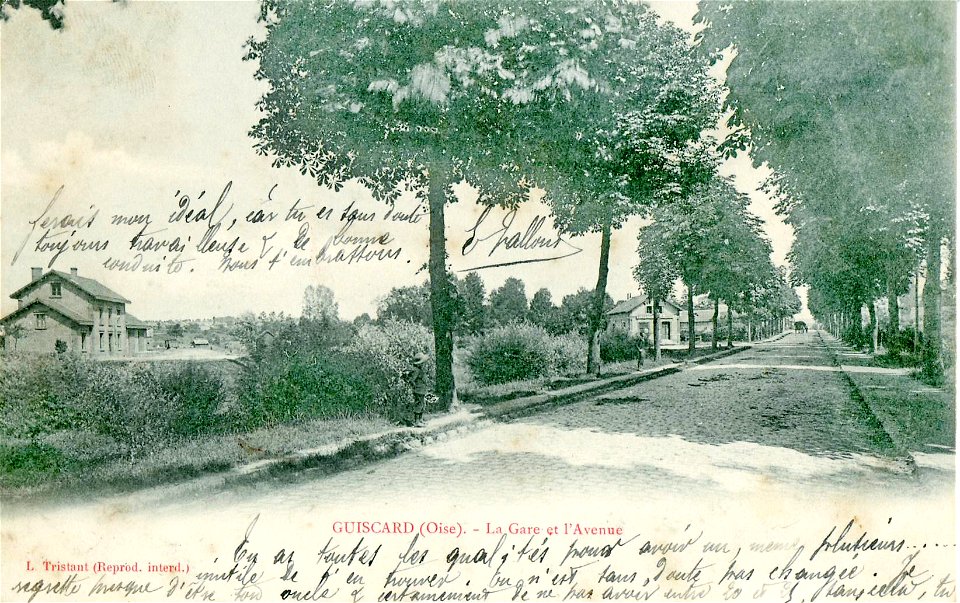 ferais mon idéal, car tu es sans doute
toujours travailleuse & de bonne
conduite. Nous t'embrassons.
E Vallout
GUISCARD (Oise). - La Gare et l'Avenue
L. Tristant (Reprod. interd.)
Tu as toutes les qualités pour avoir un, même plusieurs.....
inutile de t'en trouver. tu n'est sans doute pas changée. Je
regrette presque d'être ton oncle & certainement de ne pas avoir entre 20 et 25, tu